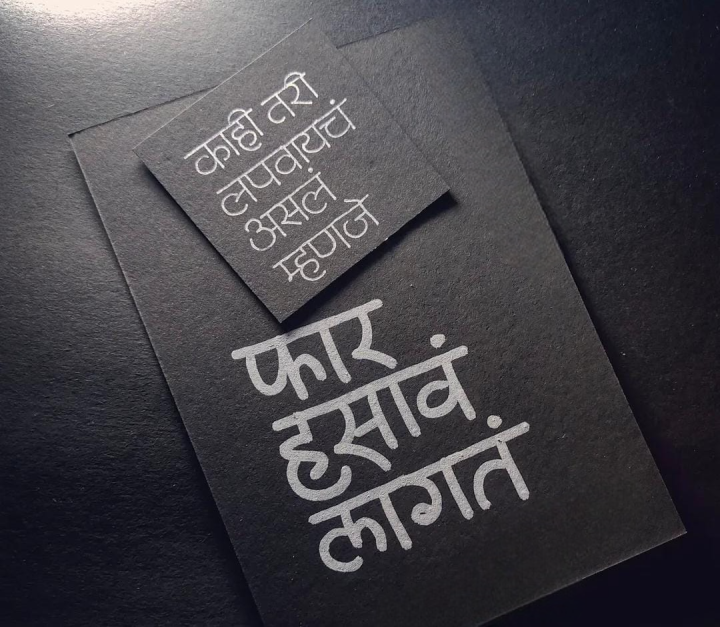 काही तरी
लपवायचं
असलं
म्हणजे
फार
हसावं
लागतं